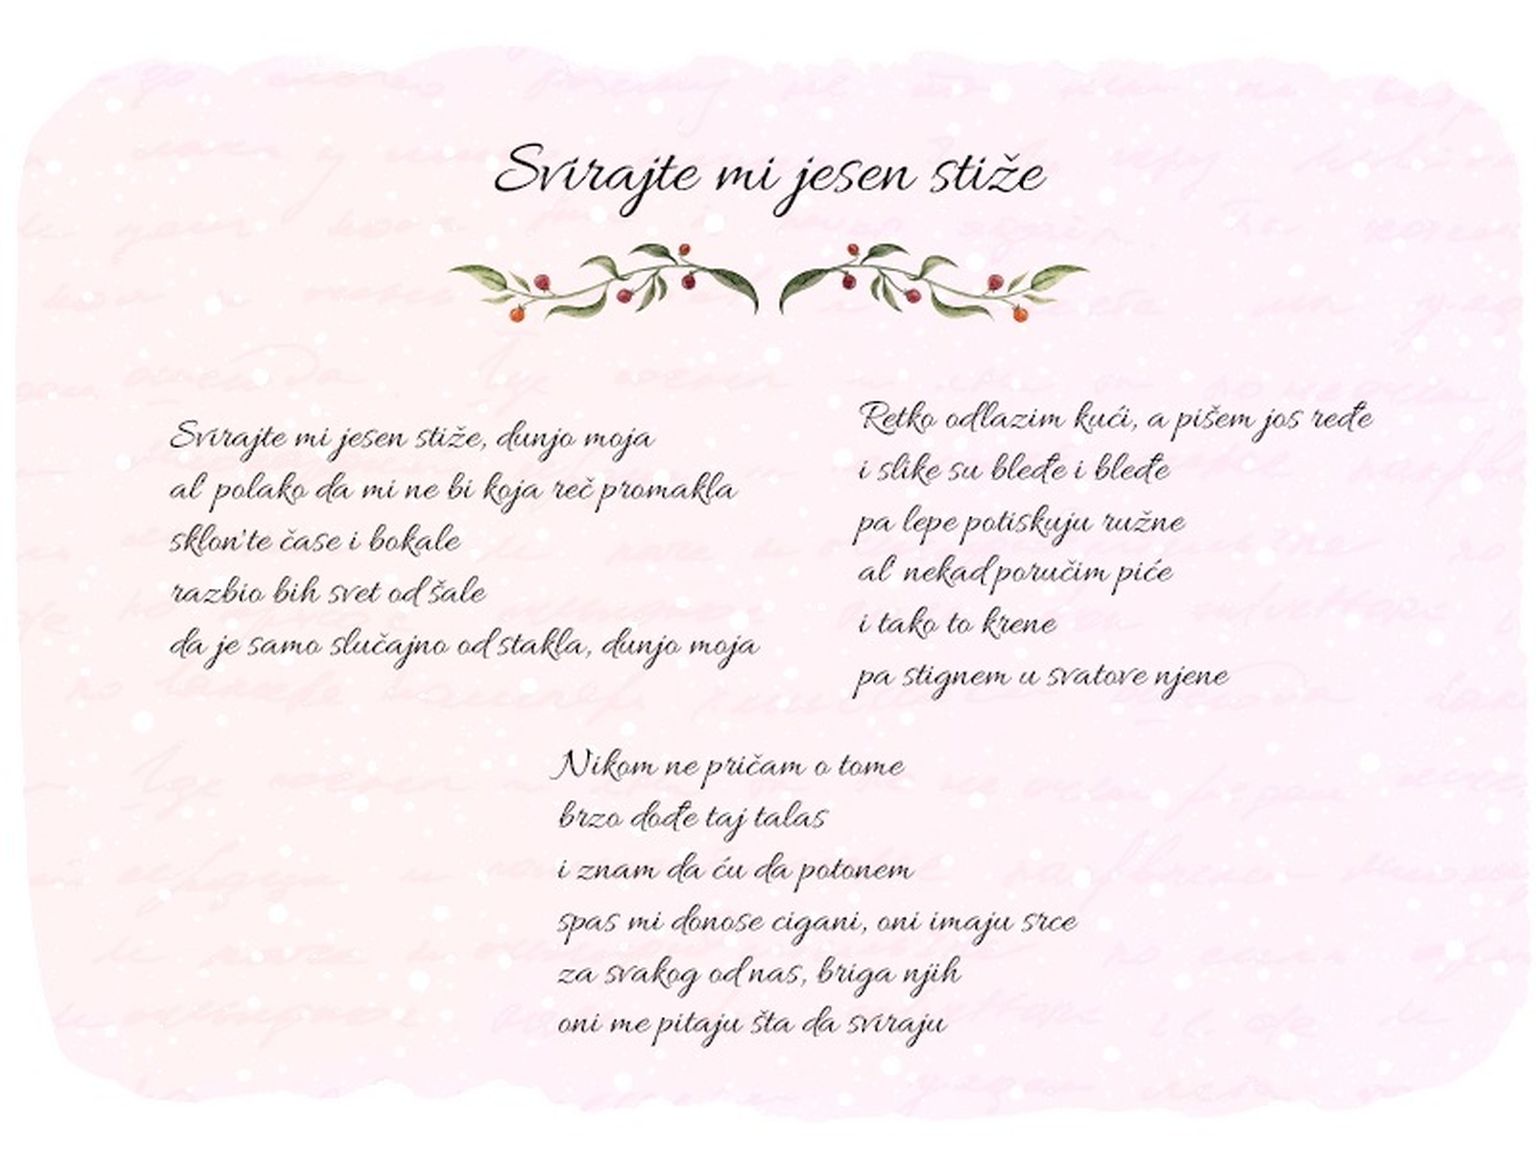 Svirajte mi jesen stiže
Svirajte mi jesen stiže, dunjo moja
al' polako da mi ne bi koja reč promakla
sklon'te čase i bokale
razbio bih svet od šale
da je samo slučajno od stakla, dunjo moja
Retko odlazim kući, a pišem jos ređe
i slike su bleđe i bleđe
pa lepe potiskuju ružne
al' nekad poručim piće
i tako to krene
pa stignem u svatove njene
Nikom ne pričam o tome
brzo dođe taj talas
i znam da ću da potonem
spas mi donose cigani, oni imaju srce
za svakog od nas, briga njih
oni me pitaju šta da sviraju